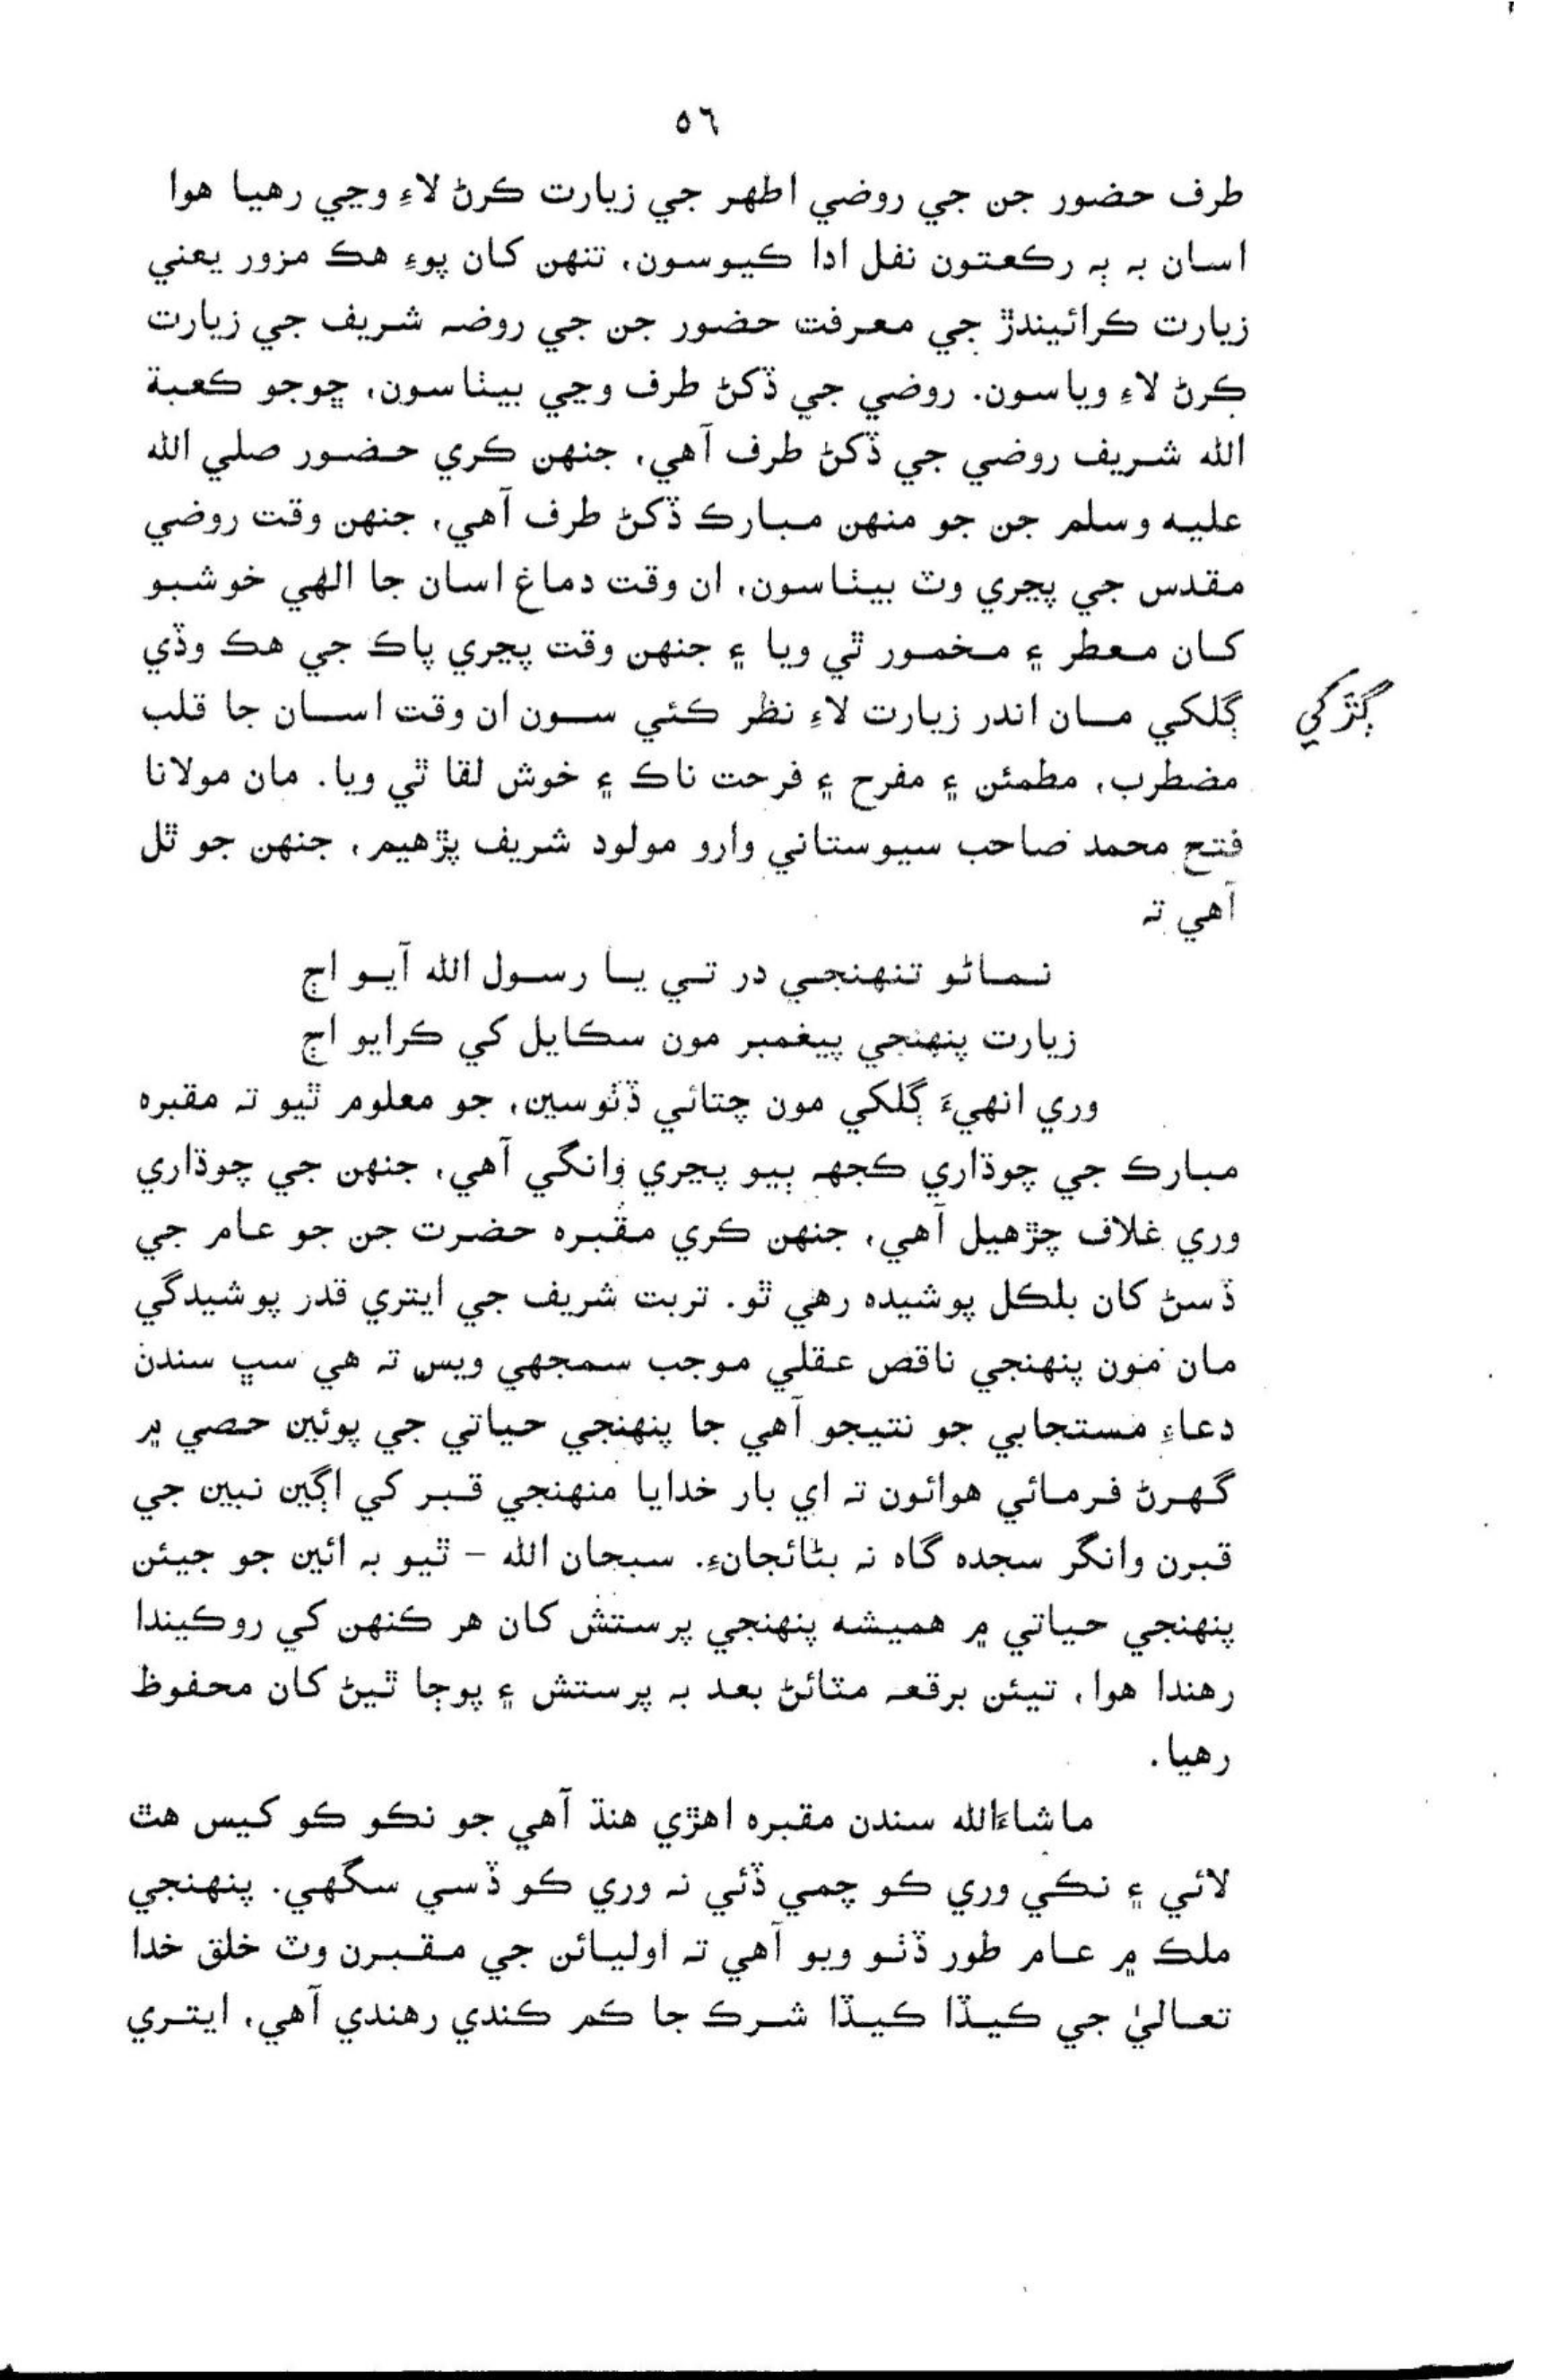 ٥٦
طرف حضور جن جي روضي اطهر جي زيارت ڪرڻ لاءِ وڃي رهيا هوا
اسان بہ ٻہ رڪعتون نفل ادا ڪيوسون، تنهن کان پوءِ هڪ مزور يعني
زيارت ڪرائيندڙ جي معرفت حضور جن جي روضہ شريف جي زيارت
ڪرڻ لاءِ وياسون. روضي جي ڏکڻ طرف وڃي بيٺاسون، ڇوجو ڪعبة
الله شريف روضي جي ڏکڻ طرف آهي، جنهن ڪري حضور صلي الله
عليہ وسلم جن جو منهن مبارڪ ڏکڻ طرف آهي، جنهن وقت روضي
مقدس جي پڃري وٽ بيٺاسون، ان وقت دماغ اسان جا الهٰي خوشبو
کان معطر ۽ مخمور ٿي ويا ۽ جنهن وقت پڃري پاڪ جي هڪ وڏي
ڳلکي مان اندر زيارت لاءِ نظر ڪئي سون ان وقت اسان جا قلب
ڳڙکي
مضطرب، مطمئن ۽ مفرح ۽ فرحت ناڪ ۽ خوش لقا ٿي ويا. مان مولانا
فتح محمد صاحب سيوستاني وارو مولود شريف پڙهيم، جنهن جو ٿل
آهي تہ
نماڻو تنهنجي در تي يا رسول الله آيو اڄ
زيارت پنهنجي پيغمبر مون سڪايل کي ڪرايو اڄ
وري انهيءَ ڳلکي مون چتائي ڏٺوسين، جو معلوم ٿيو تہ مقبره
مبارڪ جي چوڌاري ڪجهہ ٻيو پڃري وانگي آهي، جنهن جي چوڌاري
وري غلاف چڙهيل آهي، جنهن ڪري مقبره حضرت جن جو عام جي
ڏسڻ کان بلڪل پوشيده رهي ٿو. تربت شريف جي ايتري قدر پوشيدگي
مان مون پنهنجي ناقص عقلي موجب سمجهي ويس تہ هي سڀ سندن
دعاءِ مستجابي جو نتيجو آهي جا پنهنجي حياتي جي پوئين حصي ۾
گهرڻ فرمائي هوائون تہ اي بار خدايا منهنجي قبر کي اڳين نبين جي
قبرن وانگر سجده گاه نہ بڻائجانءِ. سبحان الله – ٿيو بہ ائين جو جيئن
پنهنجي حياتي ۾ هميشه پنهنجي پرستش کان هر ڪنهن کي روڪيندا
رهندا هوا، تيئن برقعہ مٽائڻ بعد بہ پرستش ۽ پوڄا ٿيڻ کان محفوظ
رهيا.
ماشاءَالله سندن مقبره اهڙي هنڌ آهي جو نڪو ڪو کيس هٿ
لائي ۽ نڪي وري ڪو چمي ڏئي نہ وري ڪو ڏسي سگهي. پنهنجي
ملڪ ۾ عام طور ڏٺو ويو آهي تہ اوليائن جي مقبرن وٽ خلق خدا
تعاليٰ جي ڪيڏا ڪيڏا شرڪ جا ڪم ڪندي رهندي آهي، ايتري